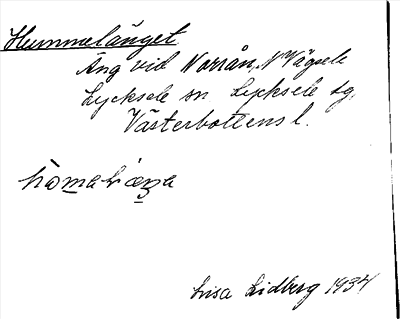 Hummelänget
Äng vid Norrån, N Vägsele
Lycksele sn Lycksele sg,
Västerbottens l.
Lisa Lidberg 1934